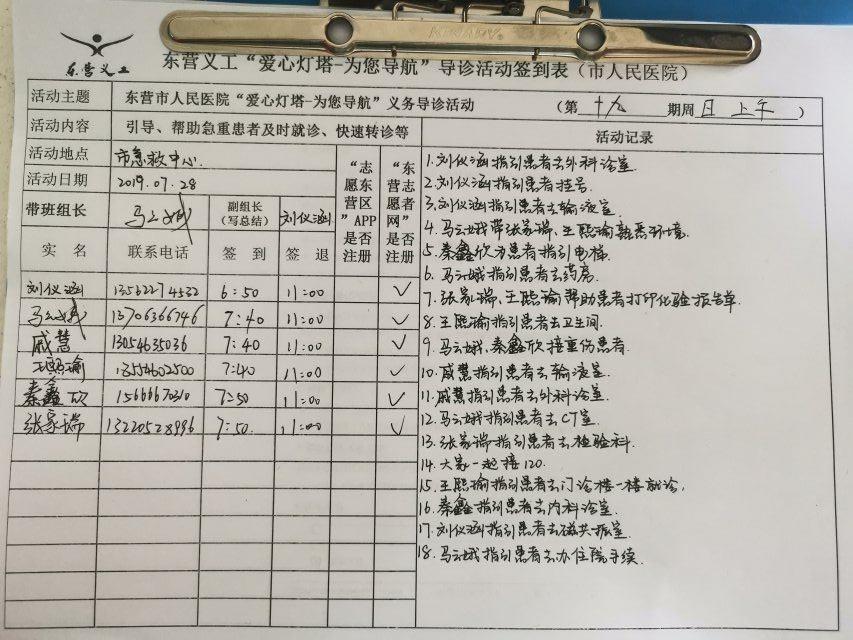 东营义工
东营义工“爱心灯塔-为您导航”导诊活动签到表（市人民医院）
活动主题 东营市人民医院“爱心灯塔-为您导航”义务导诊活动 （第 十九 期周 日 上午 ）
活动内容 引导、帮助急重患者及时就诊、快速转诊等 活动记录
活动地点 市急救中心.
活动日期 2019.07.28
带班组长 马云娥 副组长（写总结） 刘仪涵
“志愿东营区”APP是否注册 “东营志愿者网”是否注册
实名 联系电话 签到 签退
刘仪涵 13562274532 6:50 11:00 ✓
马云娥 13706366746 7:40 11:00 ✓
戚慧 13054635036 7:40 11:00 ✓
王熙瑜 13554602500 7:40 11:00 ✓
秦鑫欣 15666670310 7:50 11:00 ✓
张家瑞 13220528996 7:50. 11:00 ✓
1.刘仪涵指引患者去外科诊室.
2.刘仪涵指引患者挂号.
3.刘仪涵指引患者去输液室.
4.马云娥带张家瑞、王熙瑜熟悉环境.
5.秦鑫欣为患者指引电梯.
6.马云娥指引患者去药房.
7.张家瑞、王熙瑜帮助患者打印化验报告单.
8.王熙瑜指引患者去卫生间.
9.马云娥、秦鑫欣接重伤患者.
10.戚慧指引患者去输液室.
11.戚慧指引患者去外科诊室.
12.马云娥指引患者去CT室.
13.张家瑞指引患者去检验科.
14.大家一起接120.
15.王熙瑜指引患者去门诊楼一楼就诊.
16.秦鑫指引患者去内科诊室.
17.刘仪涵指引患者去磁共振室.
18.马云娥指引患者去办住院手续.